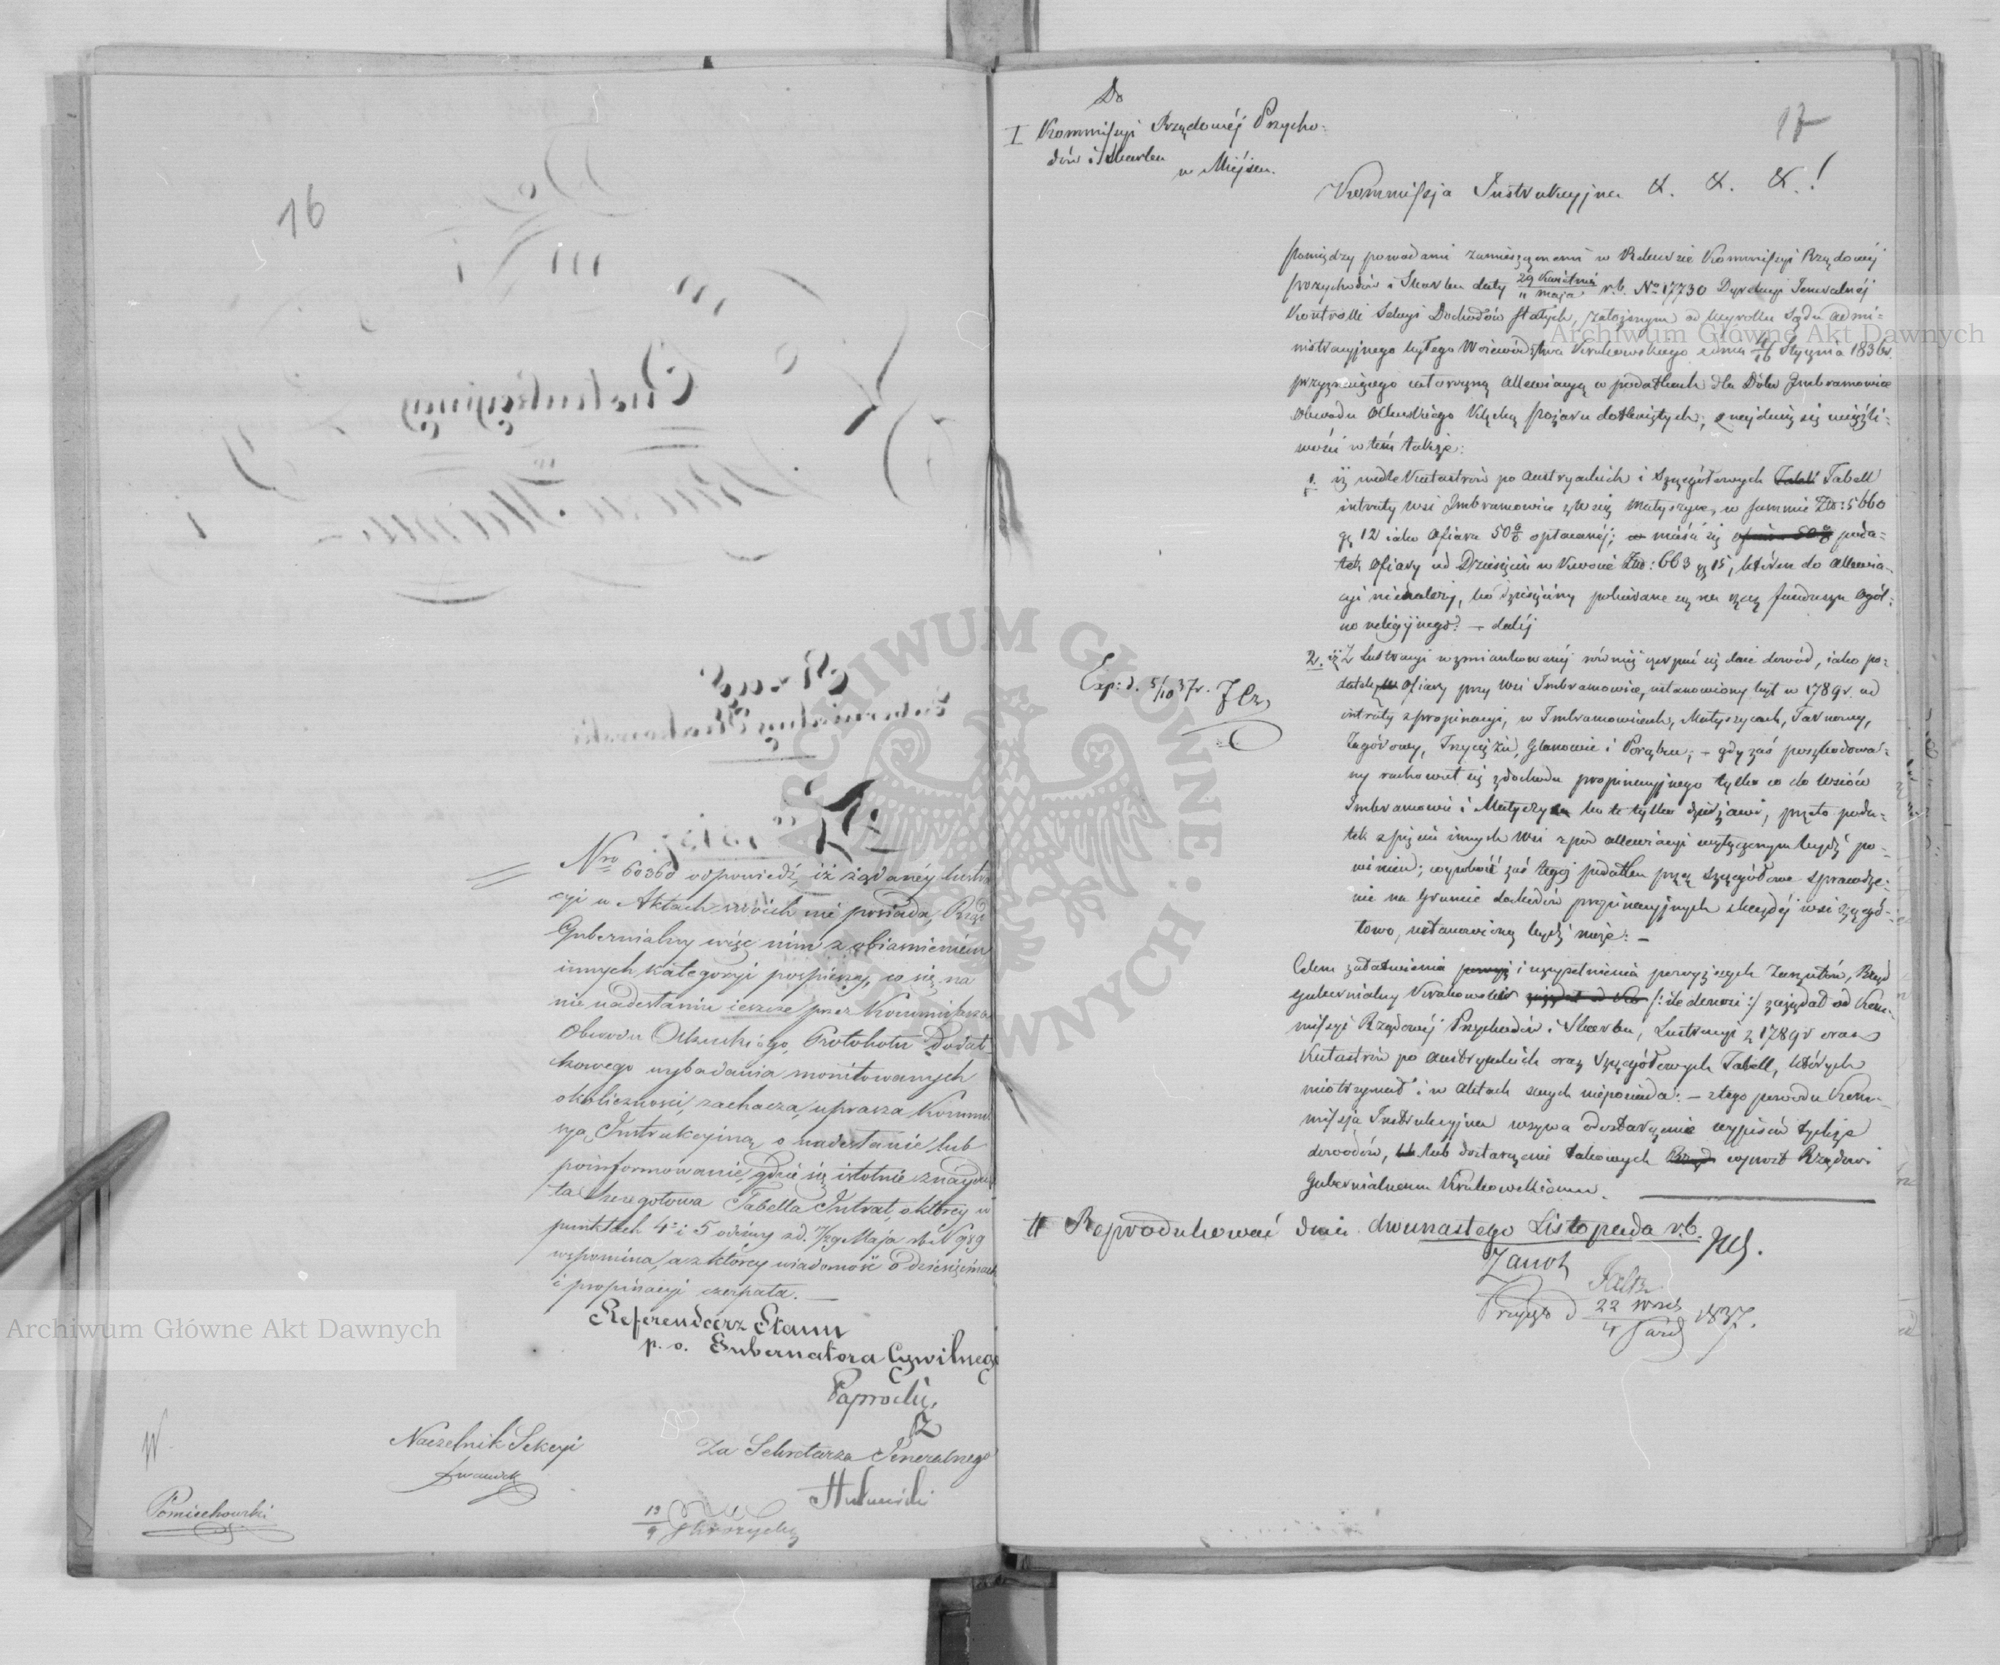 16
Nro 60360 odpowiedź, iż żądanéy lustra
cyi w Aktach swoich nie posiada, Rząd
Gubernialny więc nim z obiasnieniem
innych kategoryi pospieszy, co się na
nie nadesłaniu ieszcze przez Kommissarza
Obwodu Olkuskiego, Protokołu dodat
kowego wybadania monitowanych
okoliczności, zachacza, uprasza Kommis
syą Instrukcyiną o nadesłanie lub
poinformowanie, gdzie się istotnie znayduie
ta szczegołowa Tabella Intrat, o którey w
punktach 4º i 5 odezwy z d. 17/29 Maja rb N 989
wspomina, a z którey wiadomość o dziesięcinach
i propinacyi czerpała. —
Referendarz Stanu
p. o. Gubernatora Cywilnego
Paprocki
Naczelnik Sekcyi
Za Sekretarza Jeneralnego
Pomiechowski
13/9
17
Do
I Kommissyi Rządowéj Przycho-
dów i Skarbu
w Miejscu.
Kommissja Instrukcyjna &. &. &.!
Pomiędzy powodami zamieszczonemi w Rekursie Kommissyi Rządowéj
Przychodów i Skarbu daty 29 Kwietnia/11 maja r.b. No 17730 Dyrekcyi Jeneralnéj
Kontrolli Sekcyi Dochodów Stałych, założonym od wyroku Sądu Admi-
nistracyjnego byłego Województwa Krakowskiego z dnia 4/16 Stycznia 1836 r.
przyznającego wtorczną allewiacyą w podatkach dla Dóbr Imbramowice
Obwodu Olkuskiego klęską pożaru dotkniętych, znajdują się
w tém także:
1. iż wedle Katastrów po austryackich i szczegółowych Tabell
intraty wsi Imbramowice z wsią Małyszyce, w summie Złp: 5660
gr 12 iako Ofiara 50% opłacanéj; mieści się poda-
tek Ofiary od Dziesięcin w kwocie Złp: 663 gr 15, który do allewia-
cyi nienależy, bo dziesięciny pobierane są na rzecz funduszu ogól-
no religijnego? — daléj
2. iż z Lustracyi wzmiankowanéj również czerpać się daie dowód, iako po-
datek Ofiary przy wsi Imbramowice, ustanowiony był w 1789 r. od
intraty z propinacyi, w Imbramowicach, Małyszycach, Tarnawy,
Zagórowy, Trzyciąża, Glanowie i Porąbce; — gdy zaś poszkodowa-
ny rachował się z dochodu propinacyjnego tylko co do wsiów
Imbramowic i Małyszyc bo te tylko dzierżawi, przeto poda-
tek z pięciu innych wsi z pod allewiacyi wyłączonym bydź po-
winien; wysokość zaś tegoż podatku przez szczegółowe sprawdze-
nie na gruncie dochodów propinacyjnych z każdéj wsi szczegó-
łowo, ustanowioną bydź może: —
Celem załatwienia i uzupełnienia powyższych zarzutów, Rząd
Gubernialny Krakowski /: ile donosi :/ zażądał od Kom-
missyi Rządowéj Przychodów i Skarbu, Lustracyi z 1789 r oraz
Katastrów po austryackich oraz szczegółowych Tabell, których
nieotrzymał i w aktach swych nieposiada: — z tego powodu Kom-
missja Instrukcyjna wzywa o dostarczenie wypisów tychże
dowodów, lub dostarczenie takowych wprost Rządowi
Gubernialnemu Krakowskiemu.
Exp: d. 5/10 37 r.
II Reprodukować dnia dwunastego Listopada r.b.
Przyjęto d 22 wrześ/4 Paźd 1837.
Archiwum Główne Akt Dawnych
Archiwum Główne Akt Dawnych
ARCHIWUM GŁÓWNE AKT DAWNYCH